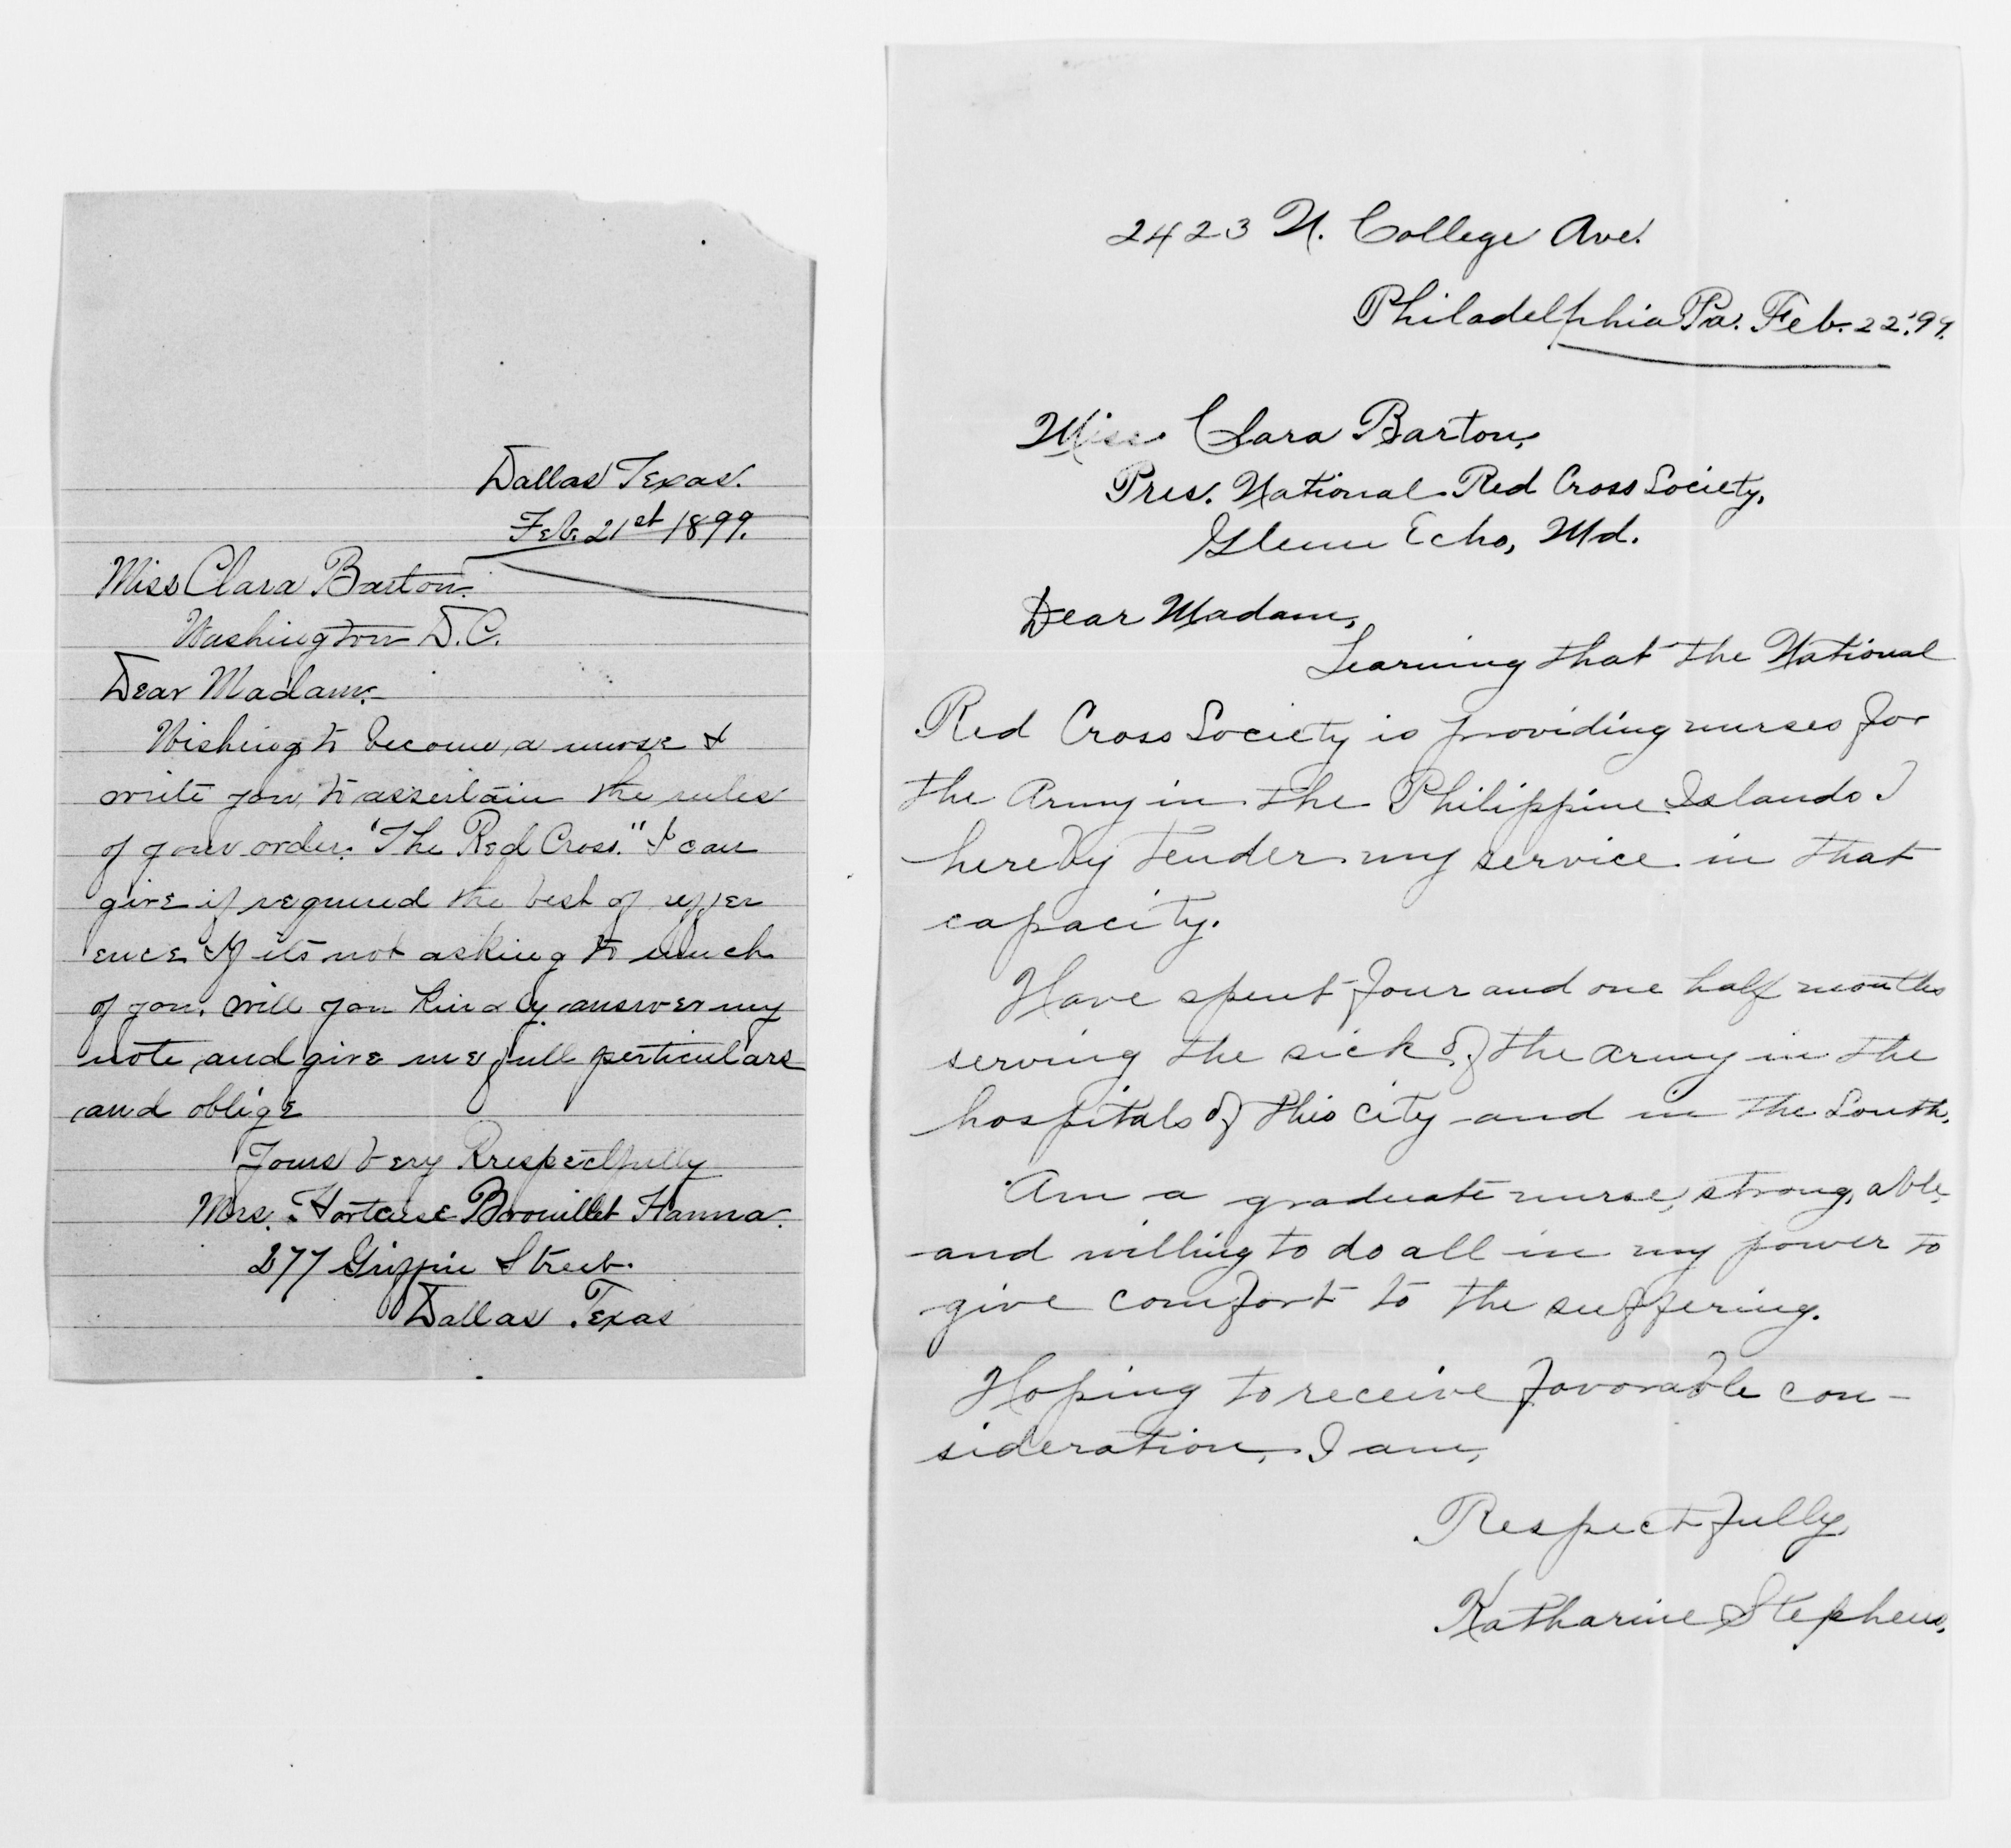 Dallas Texas.
Feb. 21st 1899.
Miss Clara Barton.
Washington D.C.
Dear Madam.
Wishing to become a nurse I
write you to assertain the rules
of your order. "The Red Cross." I can
give if required the best of reffer
ence If its not asking to much
of you. will you kindly answer my
note and give me full perticulars
and oblige
Yours Very Rrespectfully
Mrs. Hortense Brouillet Hanna.
277 Griffin Street.
Dallas Texas
2423 N. College Ave.
Philadelphia Pa. Feb. 22. '99.
Miss Clara Barton,
Pres. National Red Cross Society,
Glenn Echo, Md.
Dear Madam,
Learning that the National
Red Cross Society is providing nurses for
the Army in the Philippine Islands I
hereby tender my service in that
capacity.
Have spent four and one half months
serving the sick of the army in the
hospitals of this city and in the South.
Am a graduate nurse, strong, able
and willing to do all in my power to
give comfort to the suffering.
Hoping to receive favorable con-
sideration, I am,
Respectfully
Katharine Stephens.